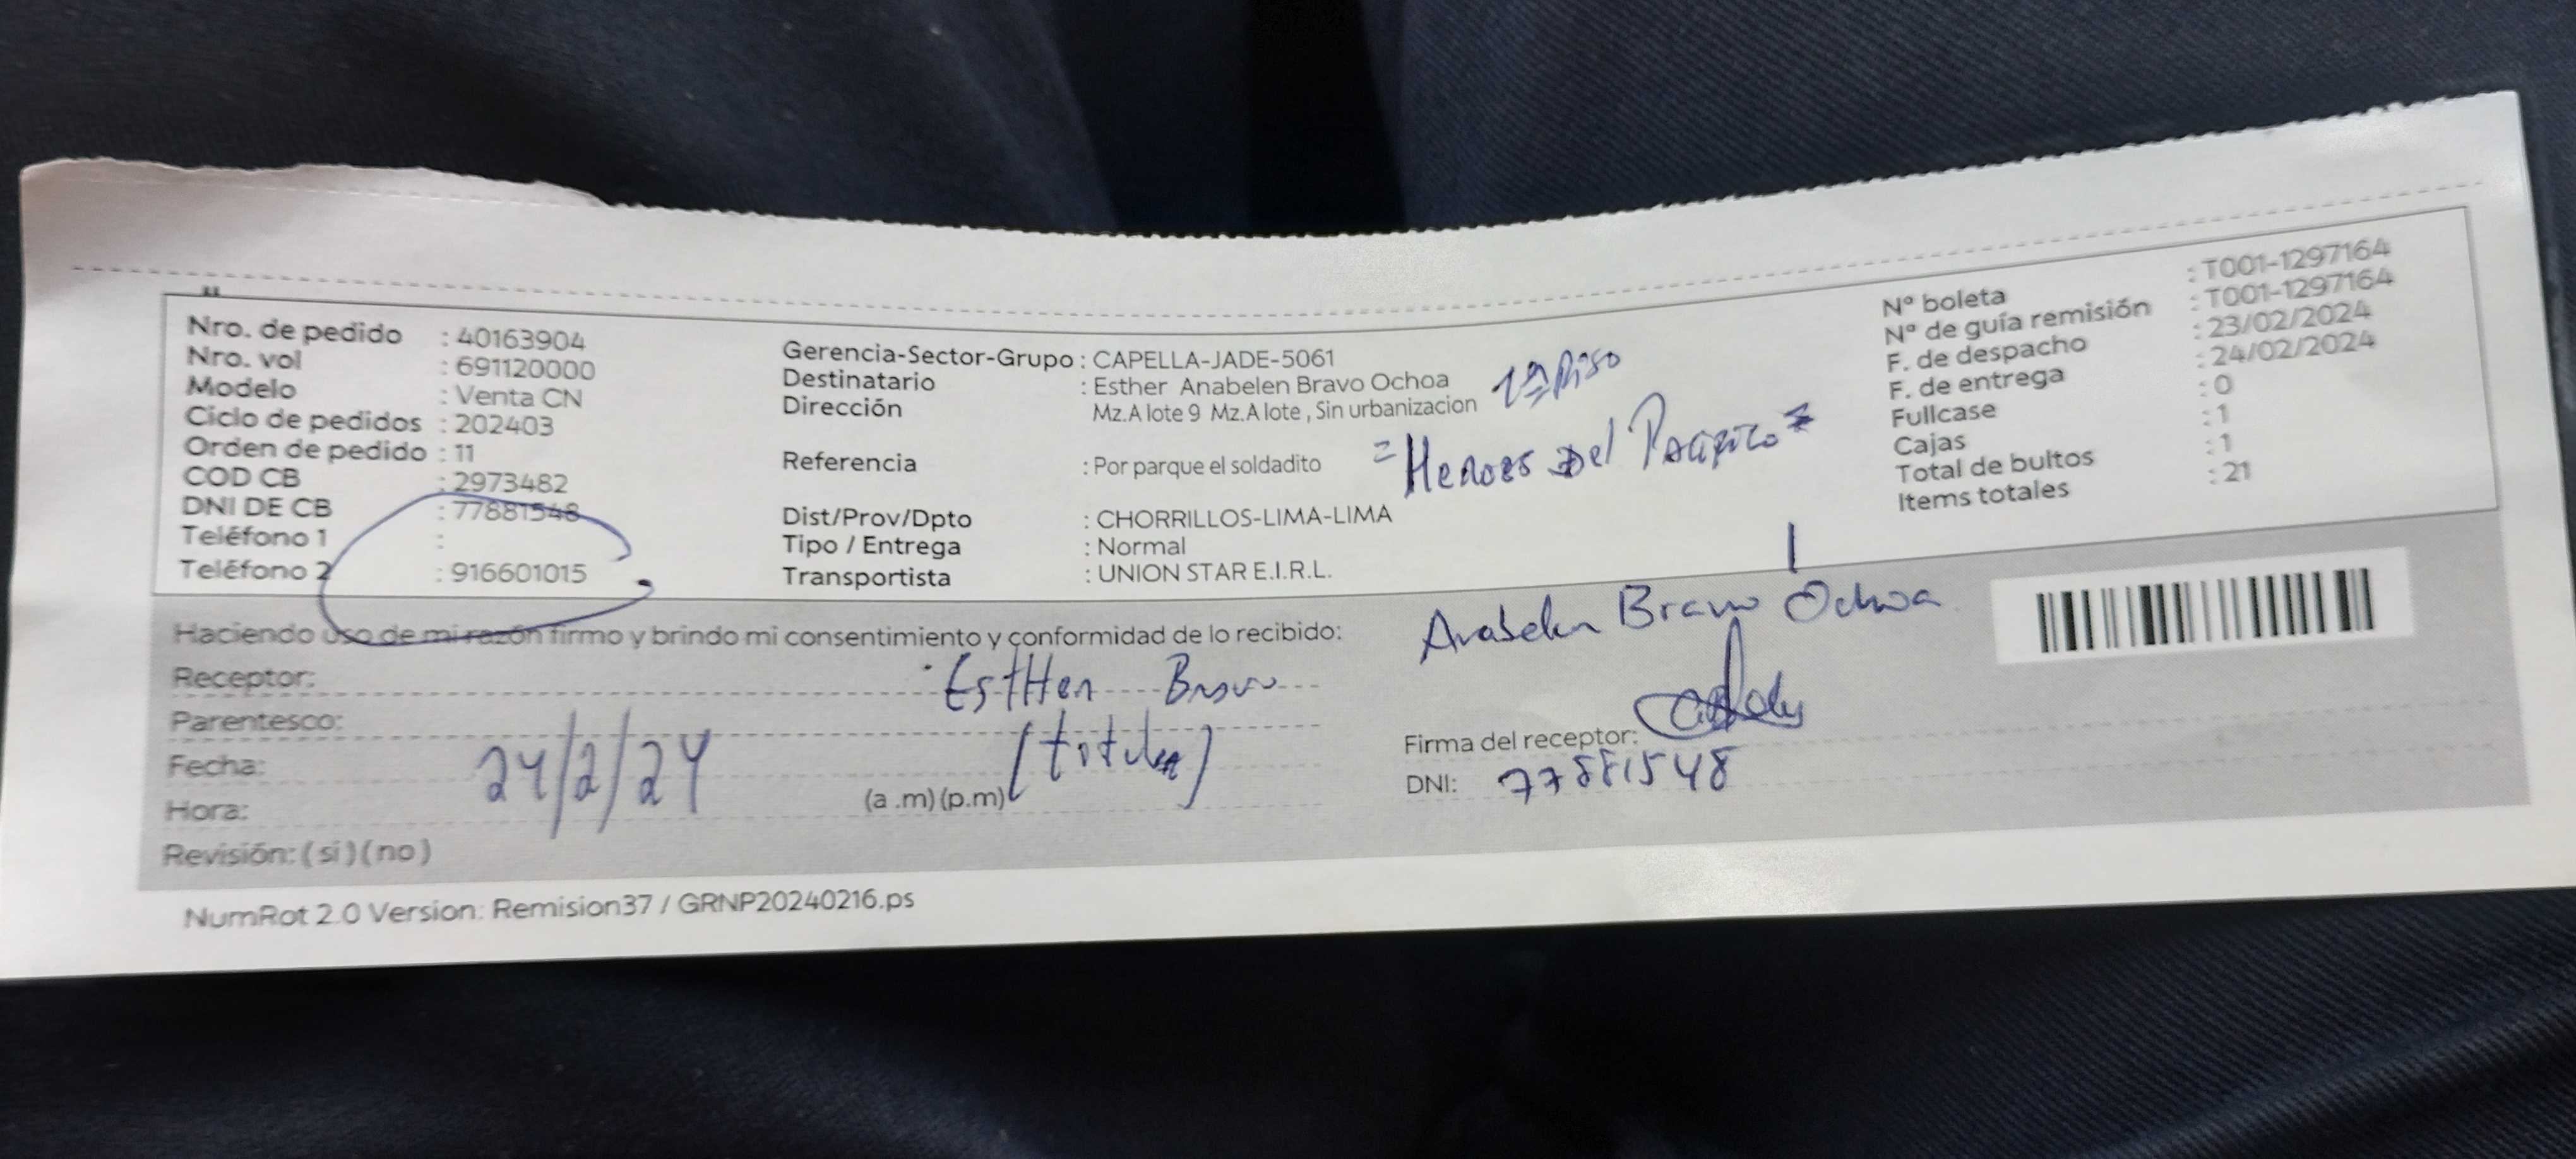 Nro. de pedido : 40163904
Nro. vol : 691120000
Modelo : Venta CN
Ciclo de pedidos : 202403
Orden de pedido : 11
COD CB : 2973482
DNI DE CB : 77881548
Teléfono 1 :
Teléfono 2 : 916601015
Gerencia-Sector-Grupo : CAPELLA-JADE-5061
Destinatario : Esther Anabelen Bravo Ochoa
Dirección Mz.A lote 9 Mz.A lote , Sin urbanizacion
1º Piso
Referencia : Por parque el soldadito
= Heroes Del Pacifico =
Dist/Prov/Dpto : CHORRILLOS-LIMA-LIMA
Tipo / Entrega : Normal
Transportista : UNION STAR E.I.R.L.
Nº boleta : T001-1297164
Nº de guía remisión : T001-1297164
F. de despacho : 23/02/2024
F. de entrega : 24/02/2024
Fullcase : 0
Cajas : 1
Total de bultos : 1
Items totales : 21
Haciendo uso de mi razón firmo y brindo mi consentimiento y conformidad de lo recibido:
Receptor: Esther Bravo
Parentesco: (titular)
Fecha: 24/2/24
Hora: (a .m) (p.m)
Revisión: ( si ) ( no )
Anabelen Bravo Ochoa
Firma del receptor:
DNI: 77881548
NumRot 2.0 Version: Remision37 / GRNP20240216.ps